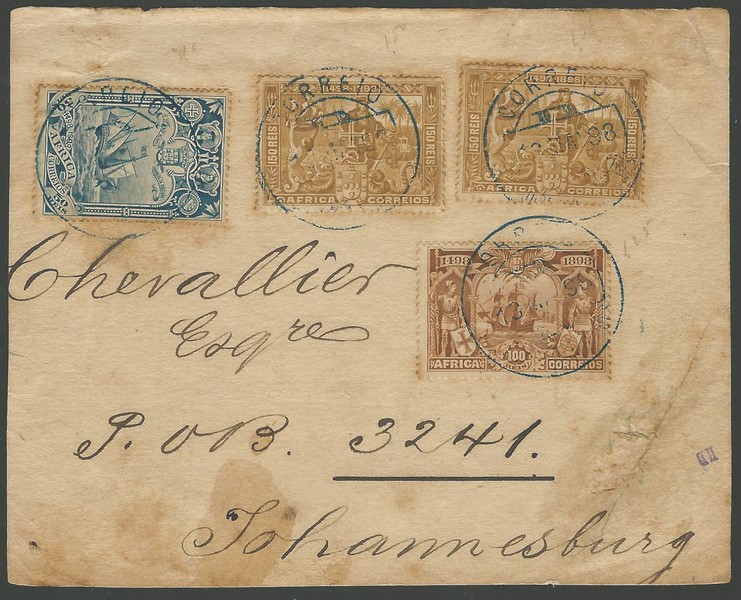 CORREIO
1498-1898
150 REIS
150 REIS
AFRICA
CORREIOS
CORREIO
1498-1898
150 REIS
150 REIS
AFRICA
CORREIOS
AFRICA
1498 1898
100
AFRICA CORREIOS
Chevallier
Esqre
P. O B. 3241.
Johannesburg